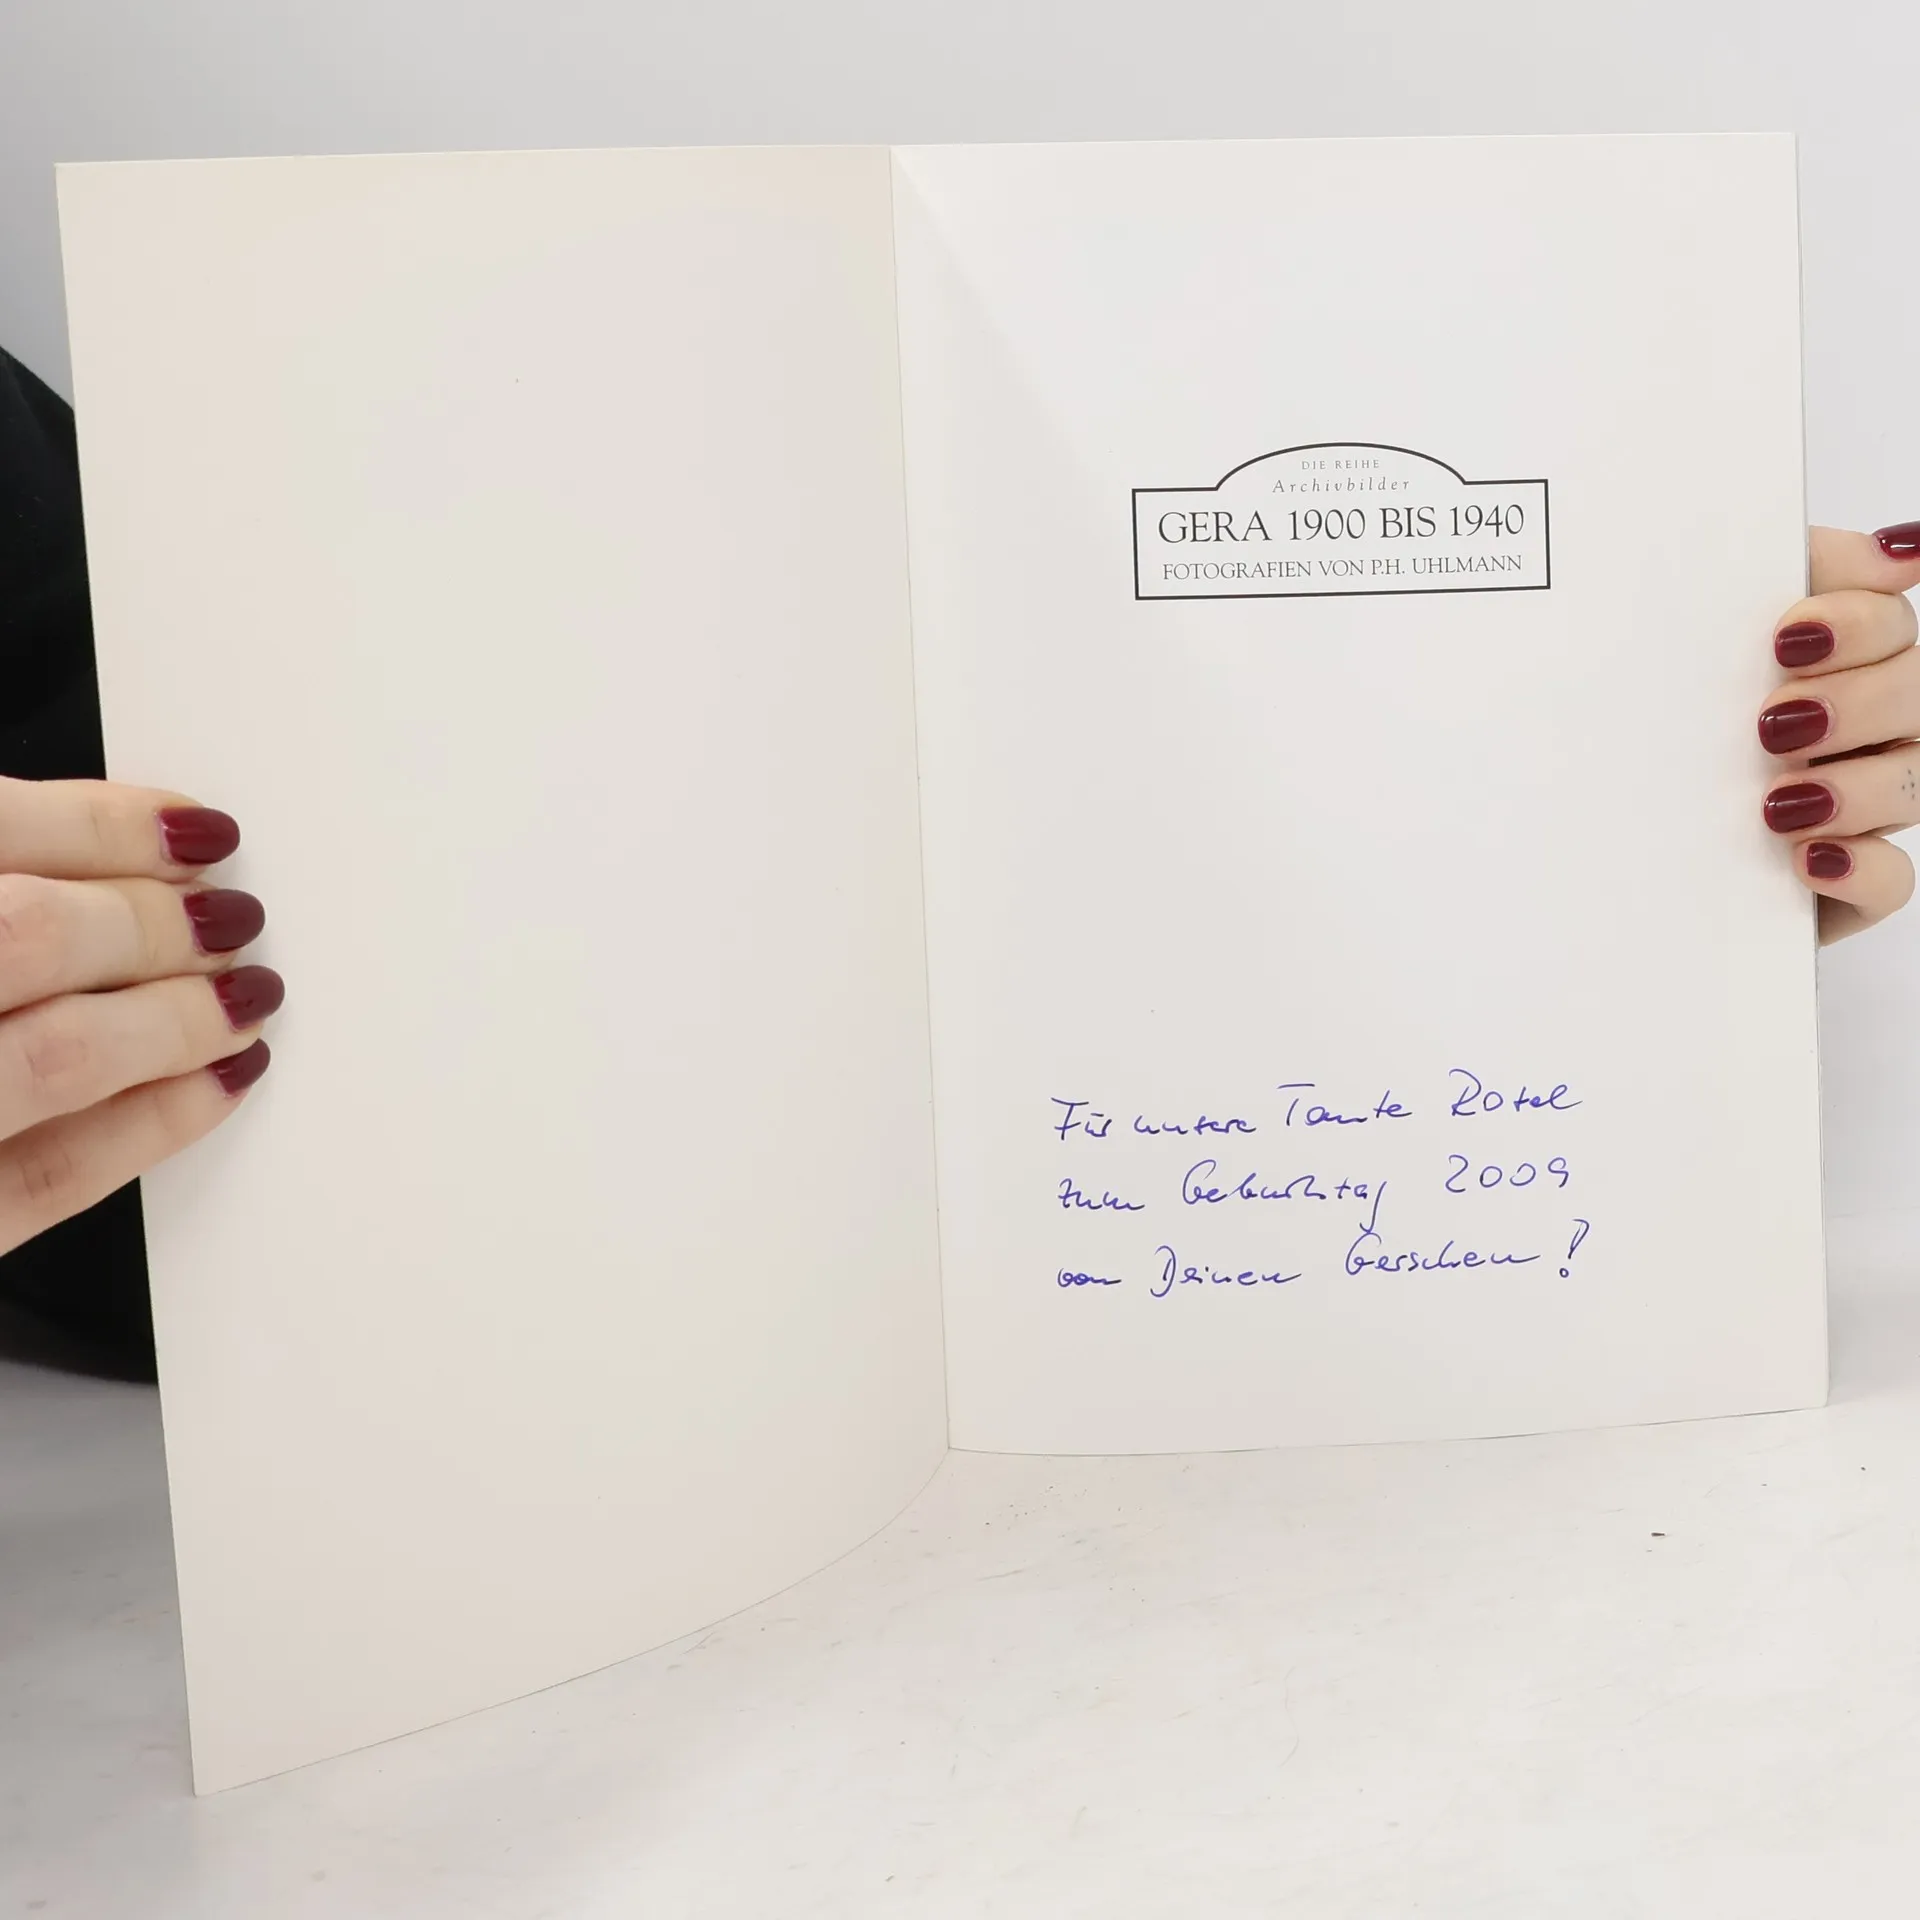 DIE REIHE
Archivbilder
GERA 1900 BIS 1940
FOTOGRAFIEN VON P.H. UHLMANN
Für unsere Tante Rosel
zum Geburtstag 2009
von Deinen Gerschen!